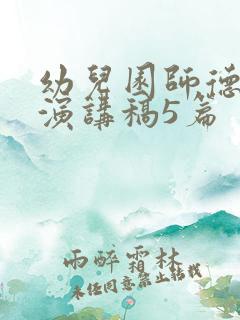 幼兒園師德
演講稿5篇
雨醉霜林
未經同意禁止轉載